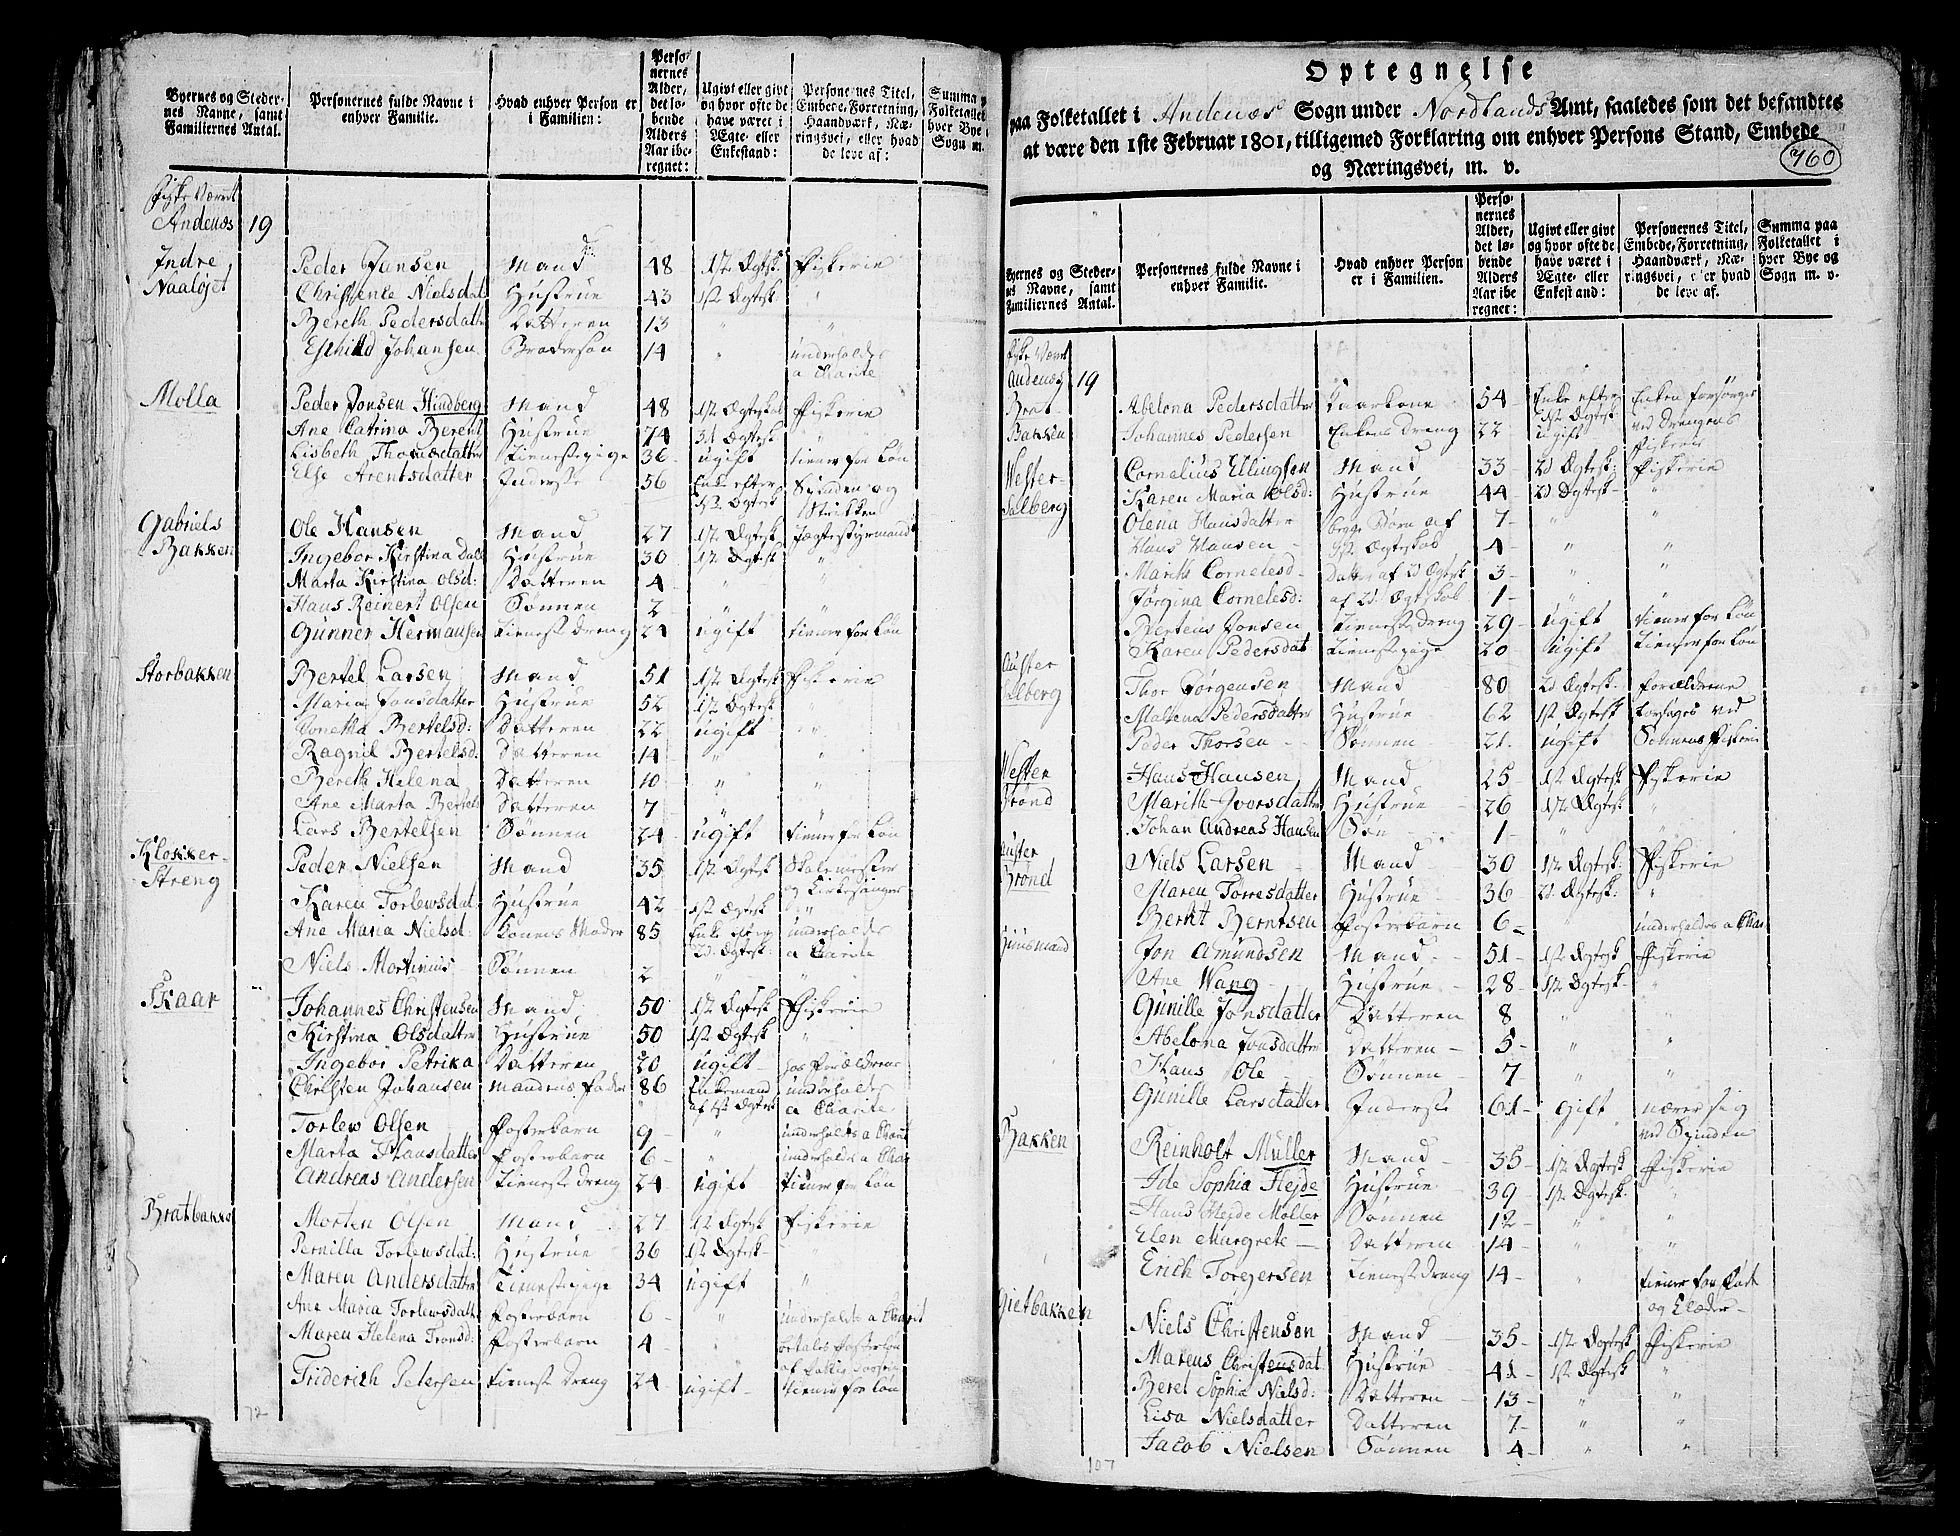 Byernes og Steder-
nes Navne, samt
Familiernes Antal.
Personernes fulde Navne i
enhver Familie.
Hvad enhver Person er
i Familien:
Perso-
nernes
Alder,
det lø-
bende
Alders
Aar ibe-
regnet:
Ugivt eller givt
og hvor ofte de
have været i
Ægte- eller
Enkestand:
Personernes Titel,
Embede, Forretning,
Haandværk, Næ-
ringsvei, eller hvad
de leve af:
Summa p
Folketallet
hver Bye
Sogn m.
Fiske Været
Andenæs 19
Indre Peder Jansen Mand 48 1st Ægtesk: Fiskerie
Naaløjet Christenle Nielsdat Hustrue 43 1st Ægtesk "
Bereth Pedersdatt Datteren 13 " "
Eschild Johansen Brodersøn 14 " underholdes
a Charite
Molla Peder Jonsen Hindberg Mand 48 1st Ægteskab Fiskerie
Ane Catrina Berent Hustrue 74 3d Ægtesk "
Lisbeth Thomsdatter Tienestepige 36 ugift tiener for Løn
Else Arentsdatter Inderste 56 Enke efter Spinden og
1st Ægtesk Strikken
Gabriels Ole Hansen Mand 27 1st Ægtesk Jægtestyrmand
Bakken Ingebor Kirstina Dall Hustrue 30 1st Ægtesk "
Marta Kirstina Olsd: Datteren 4 " "
Hans Reinert Olsen Sønnen 2 " "
Gunner Hermansen Tienest dreng 24 ugift tiener for Løn
Storbakken Bertel Larsen Mand 51 1st Ægtesk Fiskerie
Maria Jonsdatter Hustrue 52 1st Ægtesk "
Jonetha Bertelsd: Datteren 22 ugift "
Ragnil Bertelsd: Datteren 14 " "
Bereth Helena Datteren 10 " "
Ane Marta Bertels Datteren 7 " "
Lars Bertelsen Sønnen 24 ugift tiener for Løn
Klokker- Peder Nielsen Mand 35 1st Ægtesk Skolemester
Streng og Kirkesanger
Karen Torlewsdat Hustrue 42 1st Ægtesk "
Ane Maria Nielsd: Konens Moder 85 Enke efter underholdes
2d. Ægtesk: a Charite
Niels Mortinius Sønnen 2 " "
Skaar Johannes Christensen Mand 50 1st Ægtesk Fiskerie
Kirstina Olsdatter Hustrue 50 1st Ægtesk "
Ingebor Petrika Datteren 20 ugift hos Forældrene
Christen Johansen Mandens Fader 86 Enkemand underholdes
af 1st Ægtesk a Charite
Torlew Olsen Fosterbarn 9 " underholdes a Charit
Marta Hansdatter Fosterbarn 6 " underholdes a Char
Andreas Andersen Tienest dreng 24 ugift tiener for Løn
Bratbakke Morten Olsen Mand 27 1st Ægtesk Fiskerie
Pernilla Torlewsdat: Hustrue 36 1st Ægtesk "
Maren Andersdatter Tienestepige 34 ugift "
Ane Maria Torlewsdatt Fosterbarn 6 " underholdes a Charit
Maren Helena Tronsd: Fosterbarn 4 " betales Fosterløn
af
Friderich Petersen Tieneste Dreng 24 ugift tiener for Løn
72
Optegnelse
paa Folketallet i Andenæs Sogn under Nordlands Amt, saaledes som det befandtes
at være den 1ste Februar 1801, tilligemed Forklaring om enhver Persons Stand, Embede
og Næringsvei, m. v.
760
Byernes og Steder-
nes Navne, samt
Familiernes Antal.
Personernes fulde Navne i
enhver Familie.
Hvad enhver Person
er i Familien.
Perso-
nernes
Alder,
det lø-
bende
Alders
Aar ibe
regnet:
Ugivt eller givt
og hvor ofte de
have været i
Ægte- eller
Enkestand:
Personernes Titel,
Embede, Forretning,
Haandværk, Næ-
ringsvei, eller hvad
de leve af.
Summa paa
Folketallet i
hver Bye og
Sogn m. v.
Fiske Været
Andenæs 19
Brat- Abelona Pedersdatter Kaarkone 54 Enke efter Enken forsørges
1st Ægtesk ved Drengens
Bakken Johannes Pedersen Enkens dreng 22 ugift Fiskerie
Wester- Cornelius Ellingsen Mand 33 2d Ægtesk: Fiskerie
Salberg Karen Maria Olsd: Hustrue 44 2d Ægtesk "
Olena Hansdatter begge Børn af 7 " "
Hans Hansen 1st Ægteskab 4 " "
Marith Cornelesd Datter af 2d Ægtesk 3 " "
Jørgina Cornelesd: af 2d. Ægteskab 1 " "
Berteus Jonsen Tienest dreng 29 ugift tiener for Løn
Karen Pedersdat Tienestepige 20 ugift Tiener for Løn
Auster Thor Jørgensen Mand 80 2d Ægtesk. Forældrene
Salberg Maltena Pedersdatter Hustrue 62 1st Ægtesk forsørges ved
Peder Thorsen Sønnen 21 ugift Sønnens Fiskerie
Wester Hans Hansen Mand 25 1st Ægtesk Fiskerie
Brønd Marith Iversdatter Hustrue 26 1st Ægtesk "
Johan Andreas Hansen Søn 1 " "
Auster Niels Larsen Mand 30 1st Ægtesk: Fiskerie
Brønd Maren Torresdatter Hustrue 36 2d Ægtesk: "
Bernt Berntsen Fosterbarn 6 " underholdes a Char
Huusmand Jon Amundsen Mand 51 1st Ægtesk Fiskerie
Ane Wang Hustrue 28 1st Ægtesk "
Gunille Jonsdatter Datteren 8 " "
Abelona Jonsdatter Datteren 5 " "
Hans Ole Sønnen 7 " "
Gunille Larsdatter Inderste 61 gift nærer sig
ved Spinden
Bakken Reinholt Muller Mand 35 1st Ægtesk Fiskerie
Ide Sophia Hejde Hustrue 39 1st Ægtesk. "
Hans Hejde Moller Sønnen 12 " "
Elen Margrete Datteren 14 " "
Erich Torgersen Tienest dreng 14 " tiener for Føde
og Klæder
Gietbakken Niels Christensen Mand 35 1st Ægtesk Fiskerie
Mareus Christensdat Hustrue 41 1st Ægtesk "
Beret Sophia Nielsd: Datteren 13 " "
Lisa Nielsdatter Datteren 7 " "
Jacob Nielsen Sønnen 4 " "
107